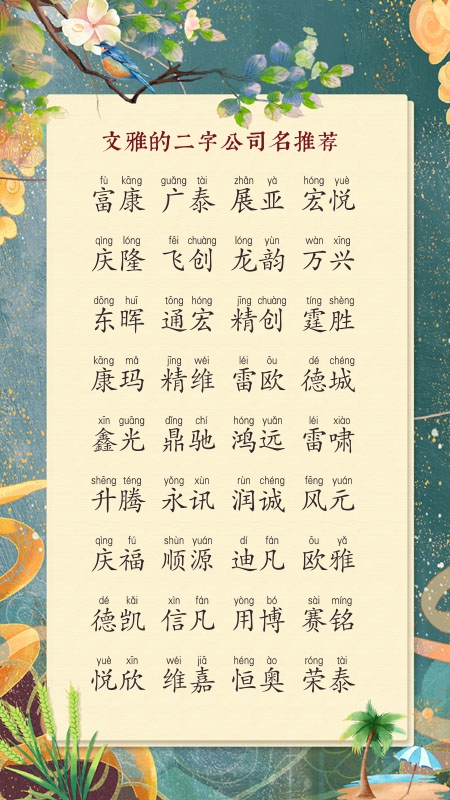 文雅的二字公司名推荐
fù kāng guǎng tài zhǎn yà hóng yuè
富康 广泰 展亚 宏悦
qìng lóng fēi chuàng lóng yùn wàn xīng
庆隆 飞创 龙韵 万兴
dōng huī tōng hóng jīng chuàng tíng shèng
东晖 通宏 精创 霆胜
kāng mǎ jīng wéi léi ōu dé chéng
康玛 精维 雷欧 德城
xīn guāng dǐng chí hóng yuǎn léi xiào
鑫光 鼎驰 鸿远 雷啸
shēng téng yǒng xùn rùn chéng fēng yuán
升腾 永讯 润诚 风元
qìng fú shùn yuán dí fán ōu yǎ
庆福 顺源 迪凡 欧雅
dé kǎi xìn fán yòng bó sài míng
德凯 信凡 用博 赛铭
yuè xīn wéi jiā héng ào róng tài
悦欣 维嘉 恒奥 荣泰